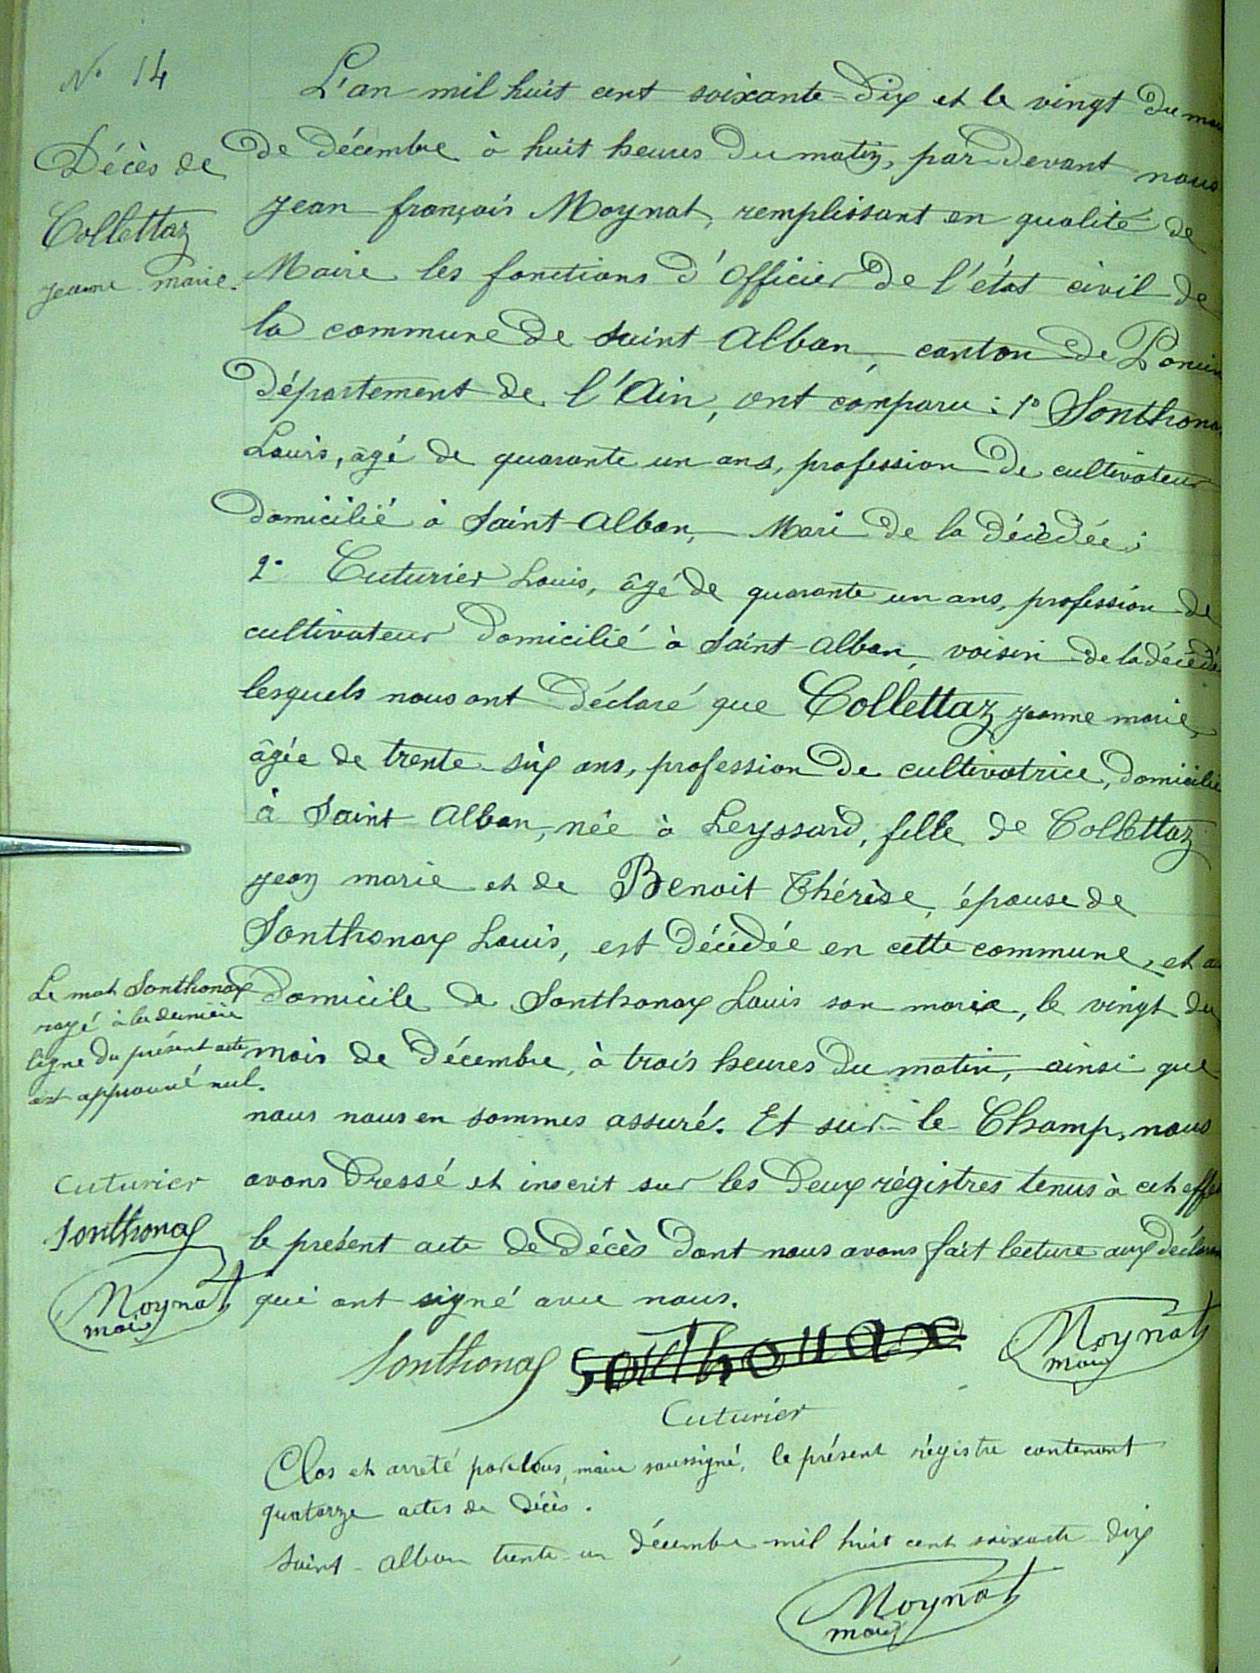 N° 14
Décès de
Collettaz
jeanne marie.
L'an mil huit cent soixante Dix et le vingt du mois
de décembre à huit heures du matin, par devant nous
jean françois Moynat, remplissant en qualité de
Maire les fonctions d'Officier de l'état civil de
la commune de Saint Alban, canton de Poncin
département de l'Ain, ont comparu : 1° Sonthonax
Louis, âgé de quarante un ans, profession de cultivateur
domicilié à Saint-Alban, Mari de la décédée ;
2° Cuturier Louis, âgé de quarante un ans, profession de
cultivateur domicilié à Saint-Alban, voisin de la décédée
lesquels nous ont déclaré que Collettaz jeanne marie,
âgée de trente-six ans, profession de cultivatrice, domiciliée
à Saint Alban, née à Leyssard, fille de Collettaz
jean marie et de Benoit Thérèse, épouse de
Sonthonax Louis, est décédée en cette commune, et au
domicile de Sonthonax Louis son marie, le vingt du
mois de décembre, à trois heures du matin, ainsi que
nous nous en sommes assuré. Et sur-le-Champ, nous
avons dressé et inscrit sur les deux régistres tenus à cet effet
le présent acte de décès dont nous avons fait lecture aux déclarants
qui ont signé avec nous.
Le mot Sonthonax
rayé à la dernière
ligne du présent acte
est approuvé nul.
Cuturier
Sonthonax
Moynat
maire
Sonthonax Sonthonax Moynat
maire
Cuturier
Clos et arreté par Nous, maire soussigné, le présent régistre contenant
quatorze actes de décès.
Saint-Alban trente-un décembre mil huit cent soixante-dix
Moynat
maire